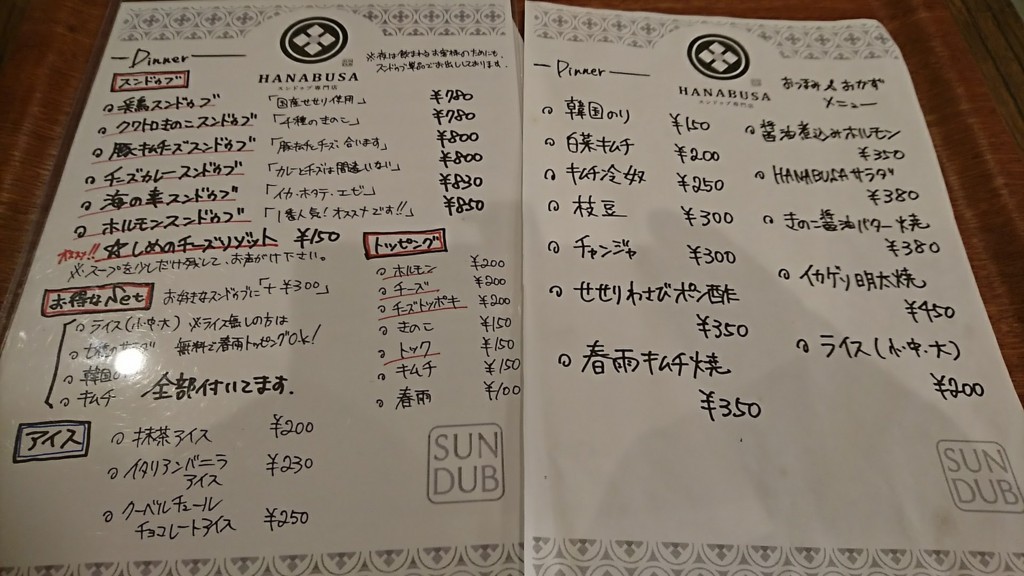 Dinner
HANABUSA
スンドゥブ専門店
※夜は飲まれるお客様のためにも、
スンドゥブ単品でお出ししております。
スンドゥブ
スンドゥブ 「国産せせり使用」 ¥780
クワトロきのこスンドゥブ 「4種のきのこ」 ¥780
豚キムチーズスンドゥブ 「豚キムチにチーズ 合います」 ¥800
チーズカレースンドゥブ 「カレーとチーズは間違いない」 ¥800
海の幸スンドゥブ 「イカ・ホタテ・エビ」 ¥830
ホルモンスンドゥブ 「1番人気!オススメです!!」 ¥850
オススメ!! ☆しめのチーズリゾット ¥150
※スープを少しだけ残して、お声がけ下さい。
お得なSet お好きなスンドゥブに「+¥300」
ライス(小・中・大) ※ライス無しの方は
無料で春雨トッピングOk!
韓国
キムチ 全部付いてます.
トッピング
ホルモン ¥200
チーズ ¥200
チーズトッポキ ¥200
きのこ ¥150
トック ¥150
キムチ ¥150
春雨 ¥100
アイス
抹茶アイス ¥200
イタリアンバニラ
アイス ¥230
クーベルチュール
チョコレートアイス ¥250
SUN
DUB
Dinner
HANABUSA
スンドゥブ専門店
おつまみ&おかず
メニュー
韓国のり ¥150
白菜キムチ ¥200
キムチ冷奴 ¥250
枝豆 ¥300
チャンジャ ¥300
せせりわさびポン酢
¥350
春雨キムチ焼
¥350
醤油煮込みホルモン
¥350
HANABUSAサラダ
¥380
きのこ醤油バター焼
¥380
イカゲソ明太焼
¥450
ライス(小・中・大)
¥200
SUN
DUB